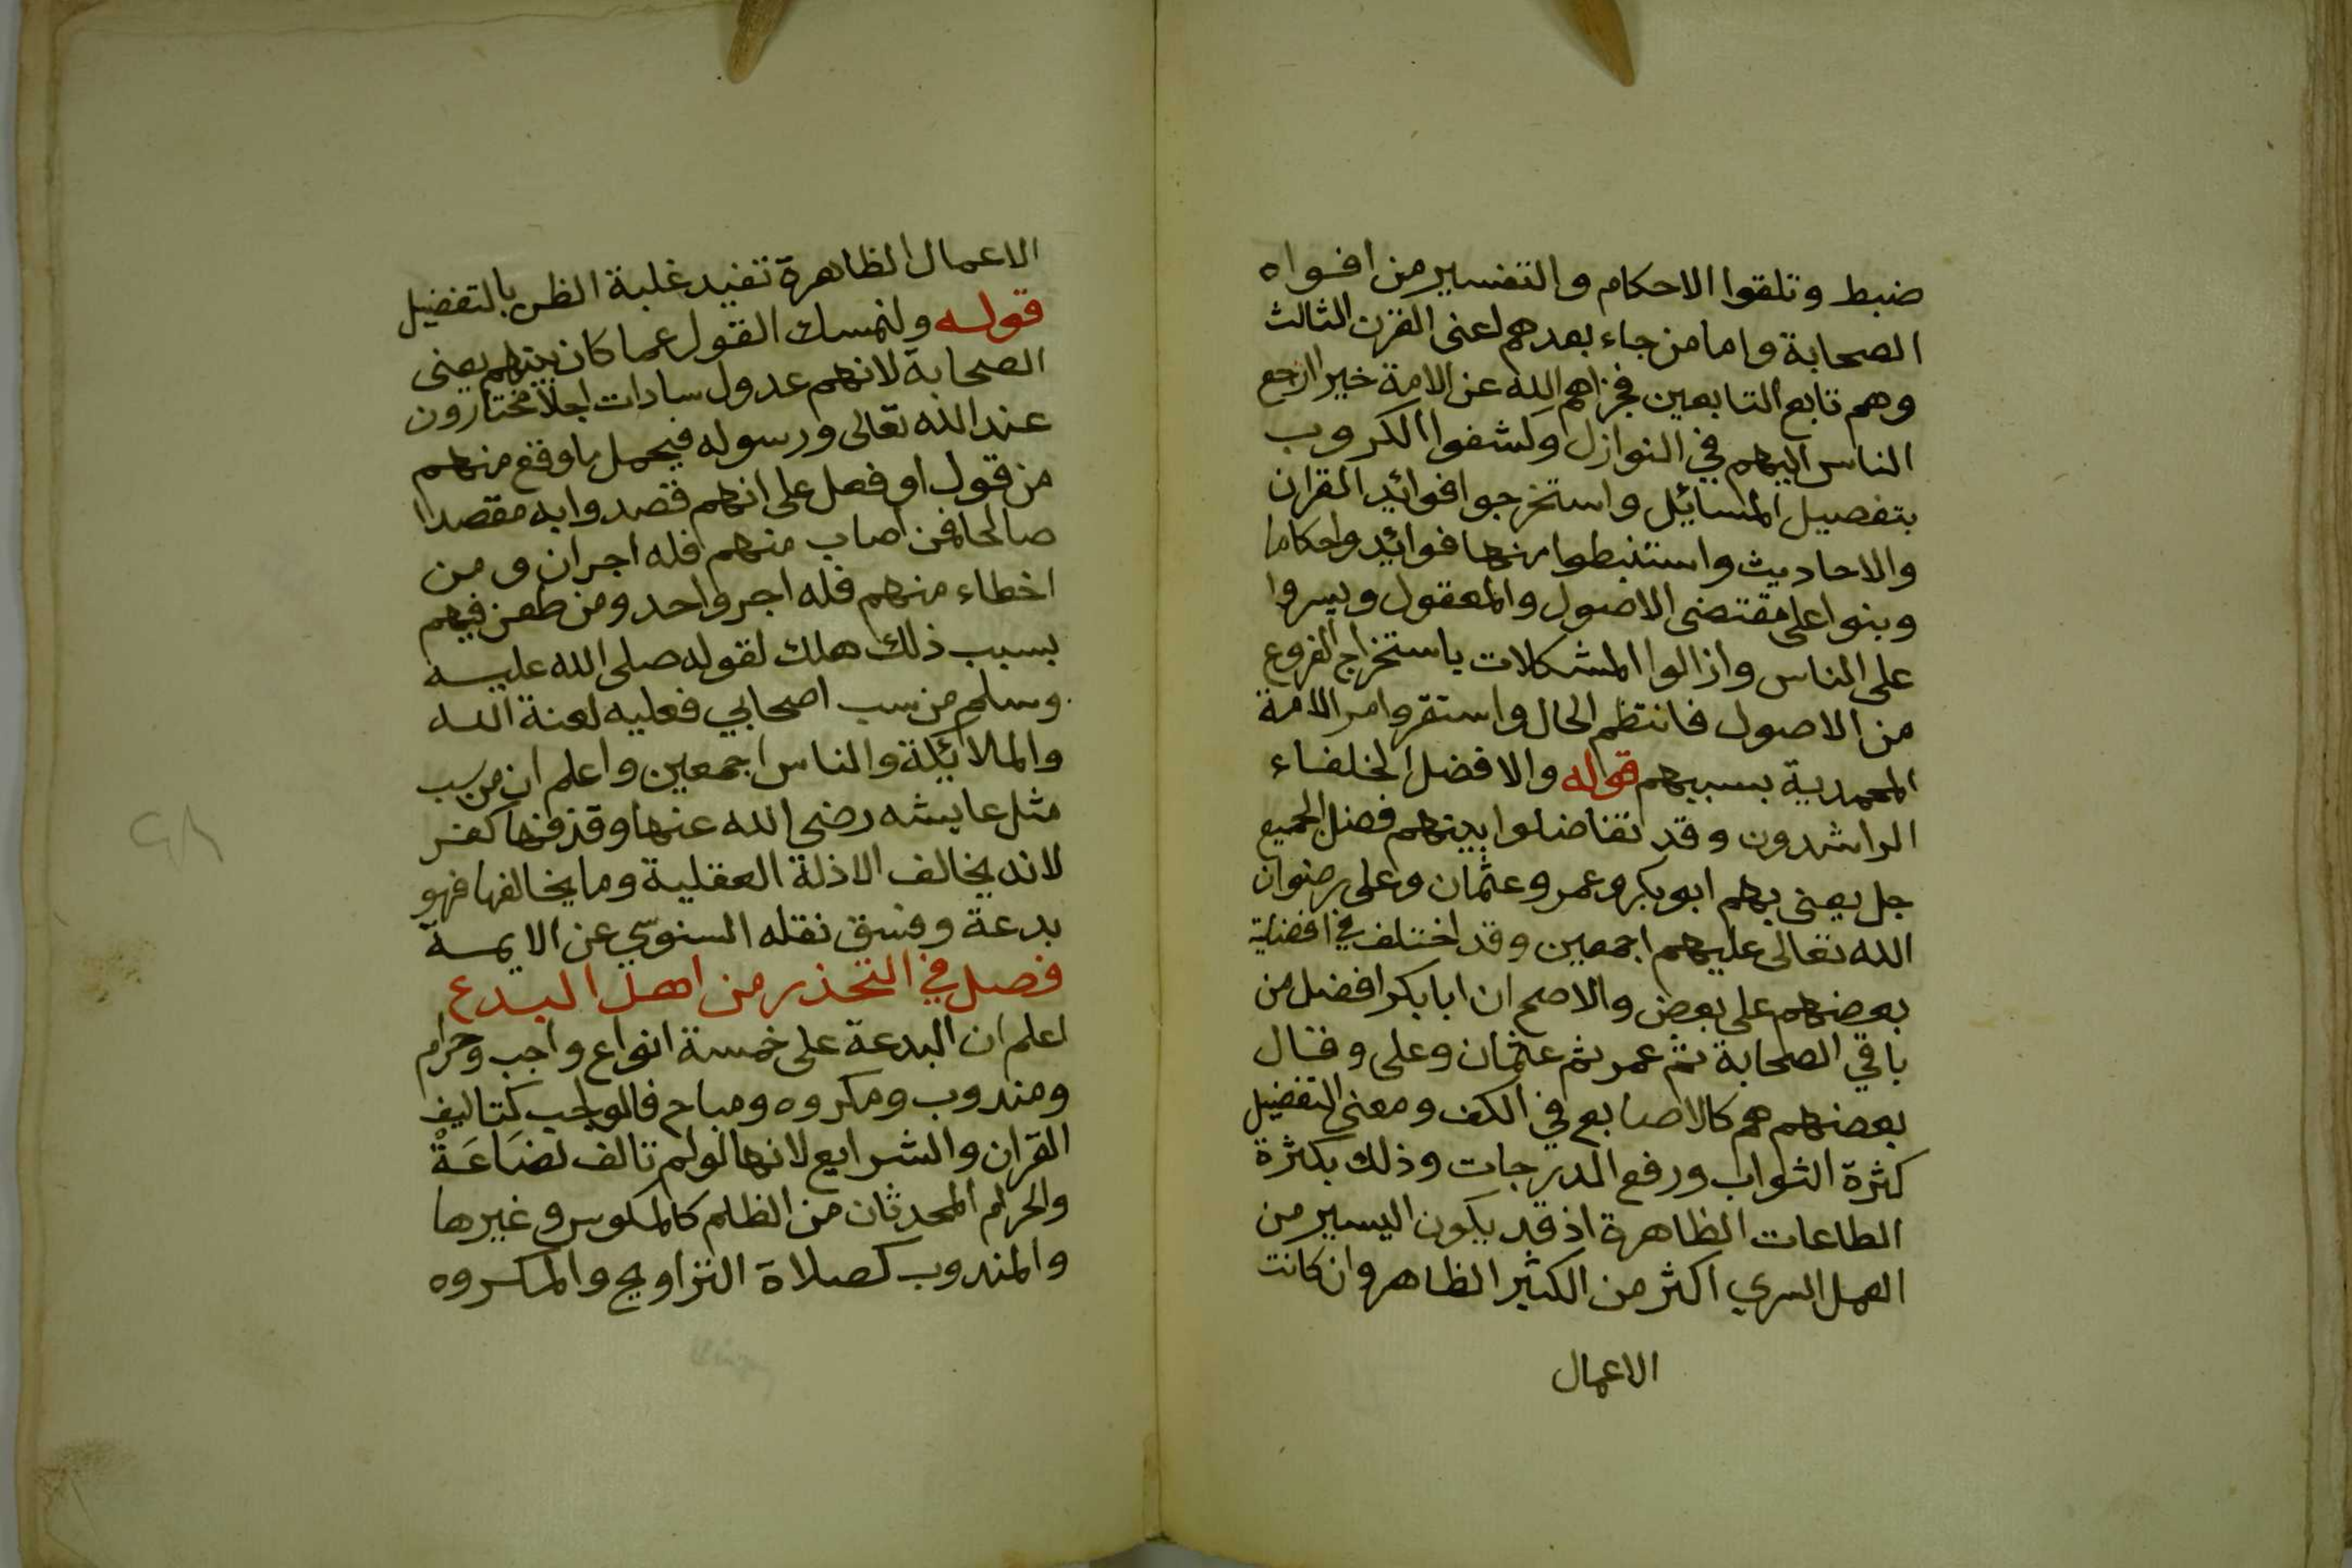 ضبط وتلقوا الاحكام والتفسير من افواه
الصحابة واما من جاء بعدهم لعنى القرن الثالث
وهم تابع التابعين فجزاهم الله عن الامة خيرا ارجع
الناس اليهم في النوازل وكشفوا الكروب
بتفصيل المسائل واستخرجوا فوائد القران
والاحاديث واستنبطوا منها فوائد واحكاما
وبنوا على مقتضى الاصول والمعقول ويسروا
على الناس وازالوا المشكلات باستخراج الفروع
من الاصول فانتظم الحال واستقر وامر الامة
المحمدية بسببهم قوله والافضل الخلفاء
الراشدون وقد تفاضلوا بينهم فضل الجميع
جل يعنى بهم ابو بكر وعمر وعثمان وعلى رضوان
الله تعالى عليهم اجمعين وقد اختلف في افضلية
بعضهم على بعض والاصح ان ابا بكر افضل من
باقي الصحابة ثم عمر ثم عثمان وعلى وقال
بعضهم هم كالاصابع في الكف ومعنى التفضيل
كثرة الثواب ورفع الدرجات وذلك بكثرة
الطاعات الظاهرة اذ قد يكون اليسير من
العمل السري اكثر من الكثير الظاهر وان كانت
الاعمال
الاعمال الظاهرة تفيد غلبة الظن بالتفضيل
قوله ولنمسك القول عما كان بينهم يعنى
الصحابة لانهم عدول سادات اجلا مختارون
عند الله تعالى ورسوله فيحمل ما وقع منهم
من قول او فعل على انهم قصدوا به مقصدا
صالحا فمن اصاب منهم فله اجران ومن
اخطاء منهم فله اجر واحد ومن طعن فيهم
بسبب ذلك هلك لقوله صلى الله عليه
وسلم من سب اصحابي فعليه لعنة الله
والملائكة والناس اجمعين واعلم ان من سب
مثل عايشه رضى الله عنها وقذفها كفر
لانه يخالف الادلة العقلية وما يخالفها فهو
بدعة وفسق نقله السنوسي عن الايمة
فصل في التحذر من اهل البدع
اعلم ان البدعة على خمسة انواع واجب وحرام
ومندوب ومكروه ومباح فالواجب كتاليف
القران والشرايع لانها لو لم تالف لضَاعَةْ
والحرام المحدثان من الظلم كالمكوس وغيرها
والمندوب كصلاة التراويح والمكروه
٢٨